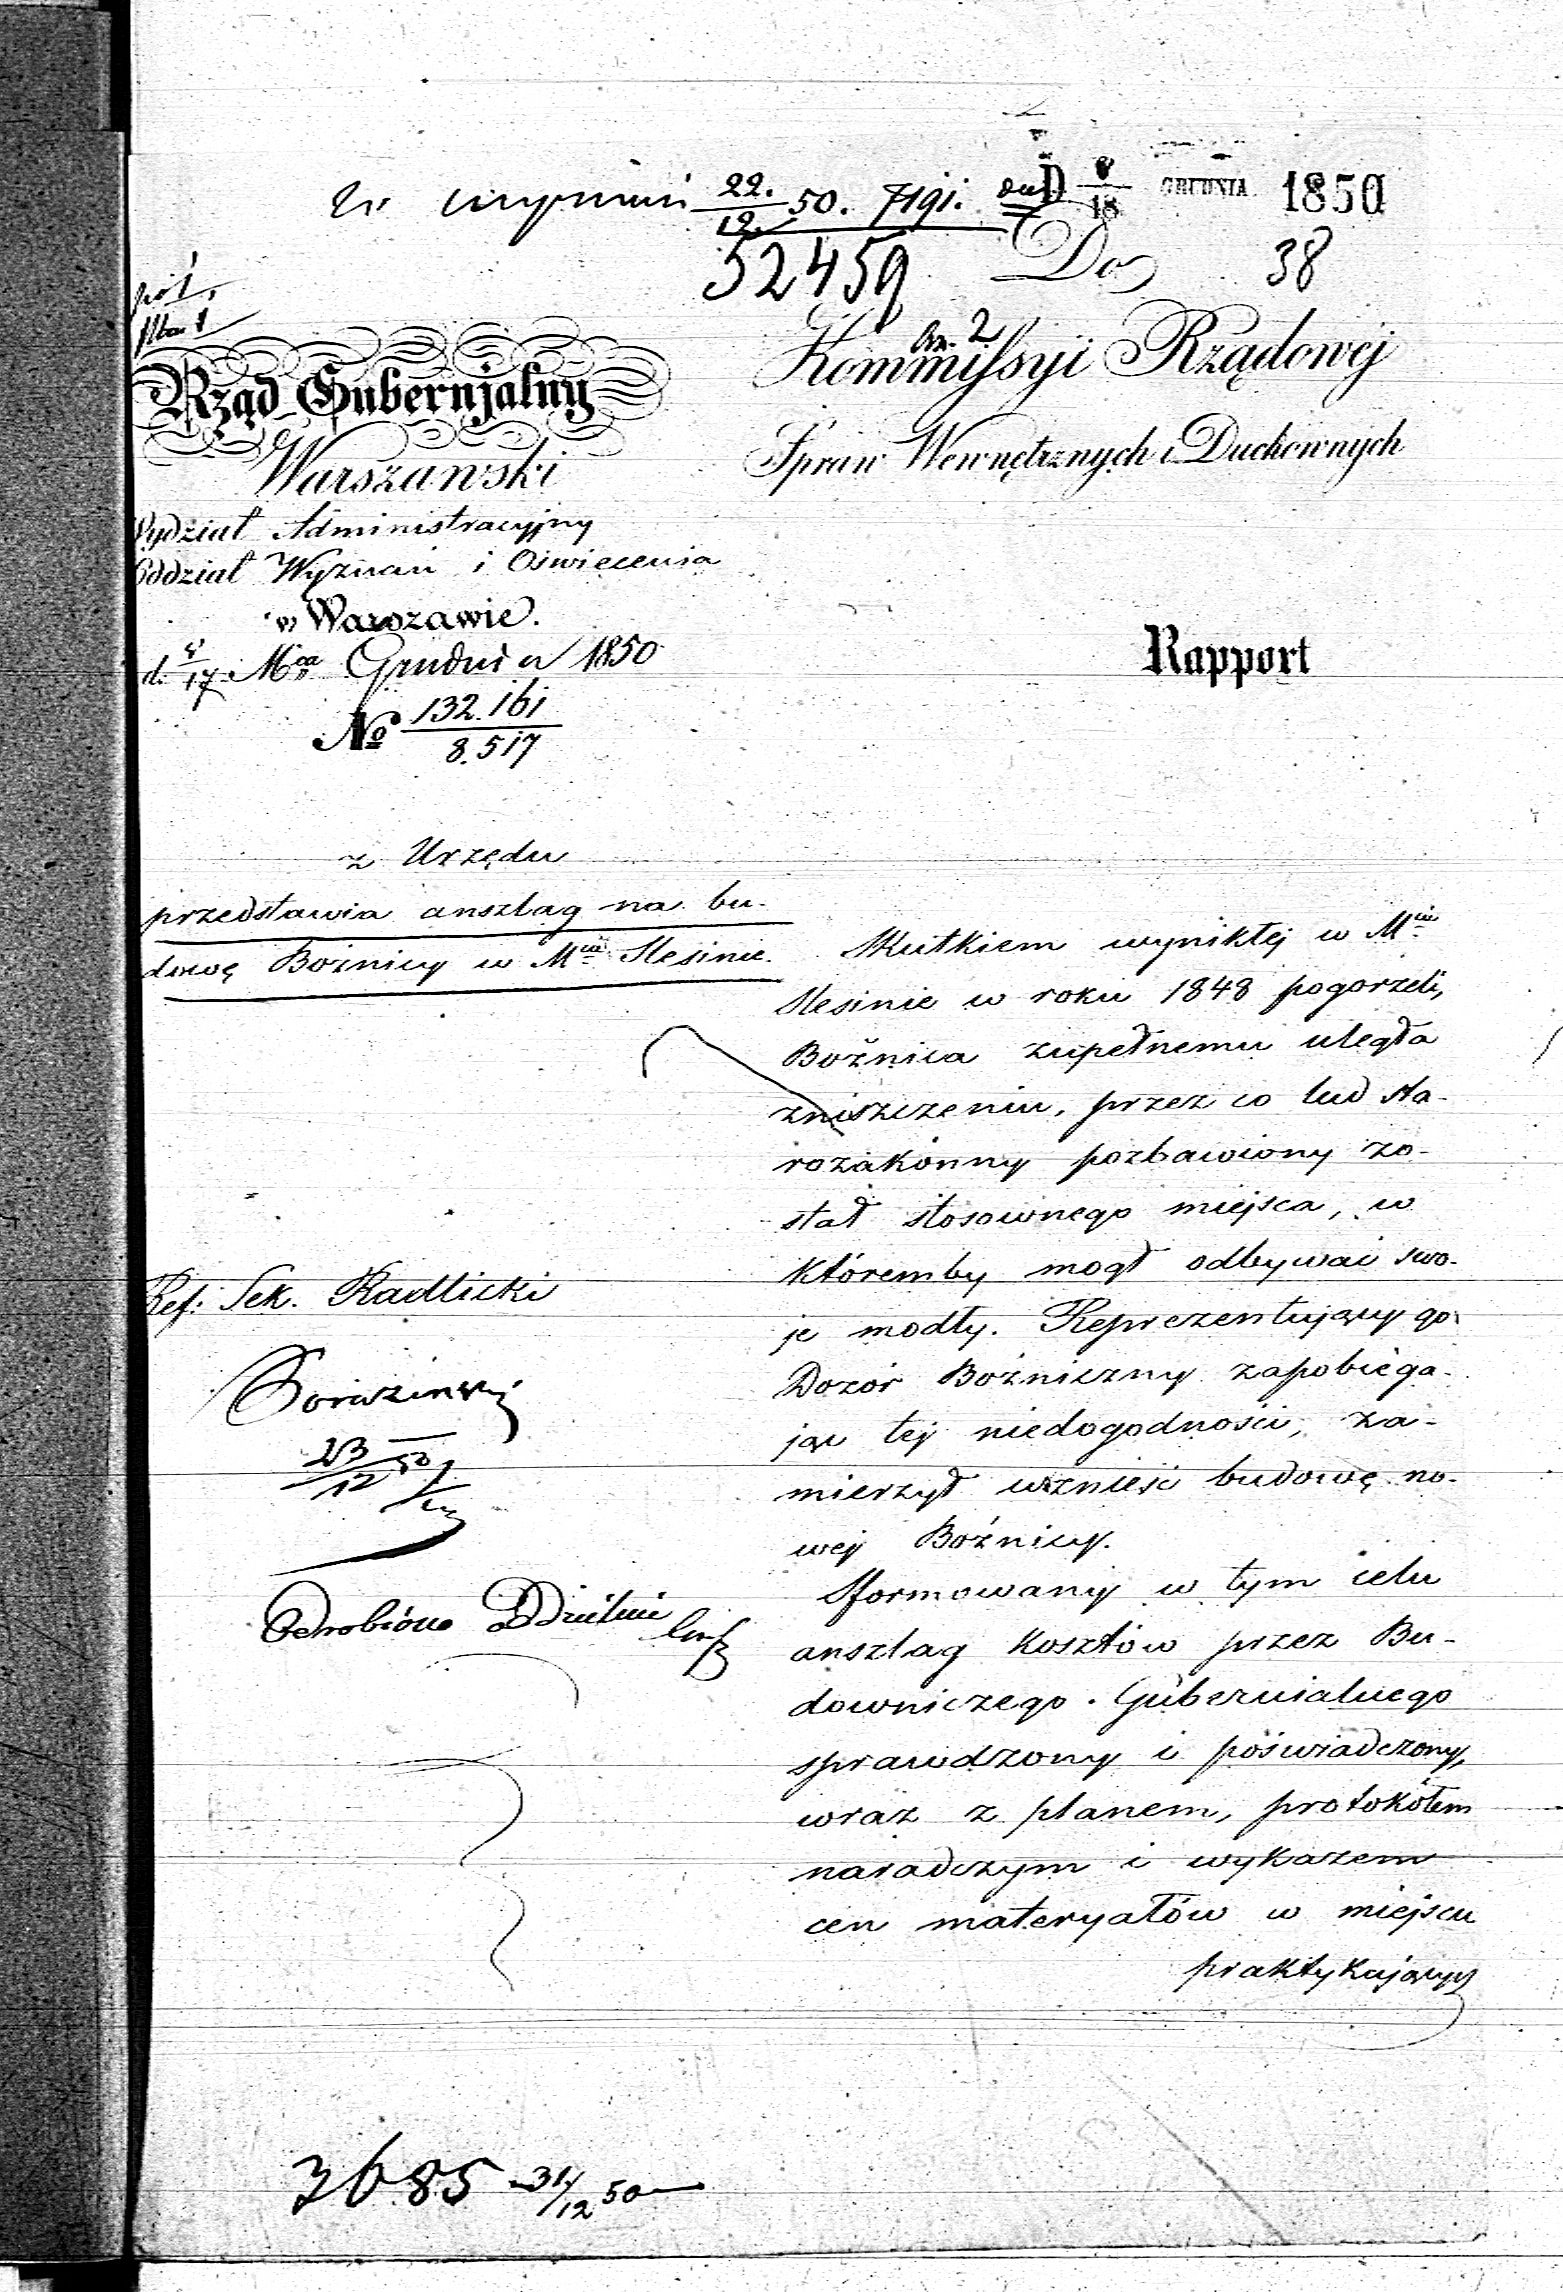 22./12. 50. 7191. D 6/18 GRUDNIA 1850
52459 Do 38
Rząd Gubernjalny
Warszawski
Wydział Administracyjny
Oddział Wyznań i Oświecenia
w Warszawie.
d. 5/17 Mca Grudnia 1850
No 132.161/8.517
Kommissyi Rządowej
Spraw Wewnętrznych i Duchownych
Rapport
z Urzędu
przedstawia anszlag na bu-
dowę Bożnicy w Mcie Slesinie.
Ref: Sek. Radlicki
23/12 50
Odrobiono Oddzielnie
Skutkiem wynikłej w Mcie
Slesinie w roku 1848 pogorzeli,
Bożnica zupełnemu uległa
zniszczeniu, przez co lud sta-
rozakonny pozbawiony zo-
stał stosownego miejsca, w
któremby mogł odbywać swo-
je modły. Reprezentujący go
Dozór Bożniczny zapobiega-
jąc tej niedogodności, za-
mierzył wznieść budowę no-
wej Bożnicy.
Sformowany w tym celu
anszlag kosztów przez Bu-
downiczego Gubernialnego
sprawdzony i poświadczony,
wraz z planem, protokółem
naradczym i wykazem
cen materyałów w miejscu
praktykujących
3685 31/12 50